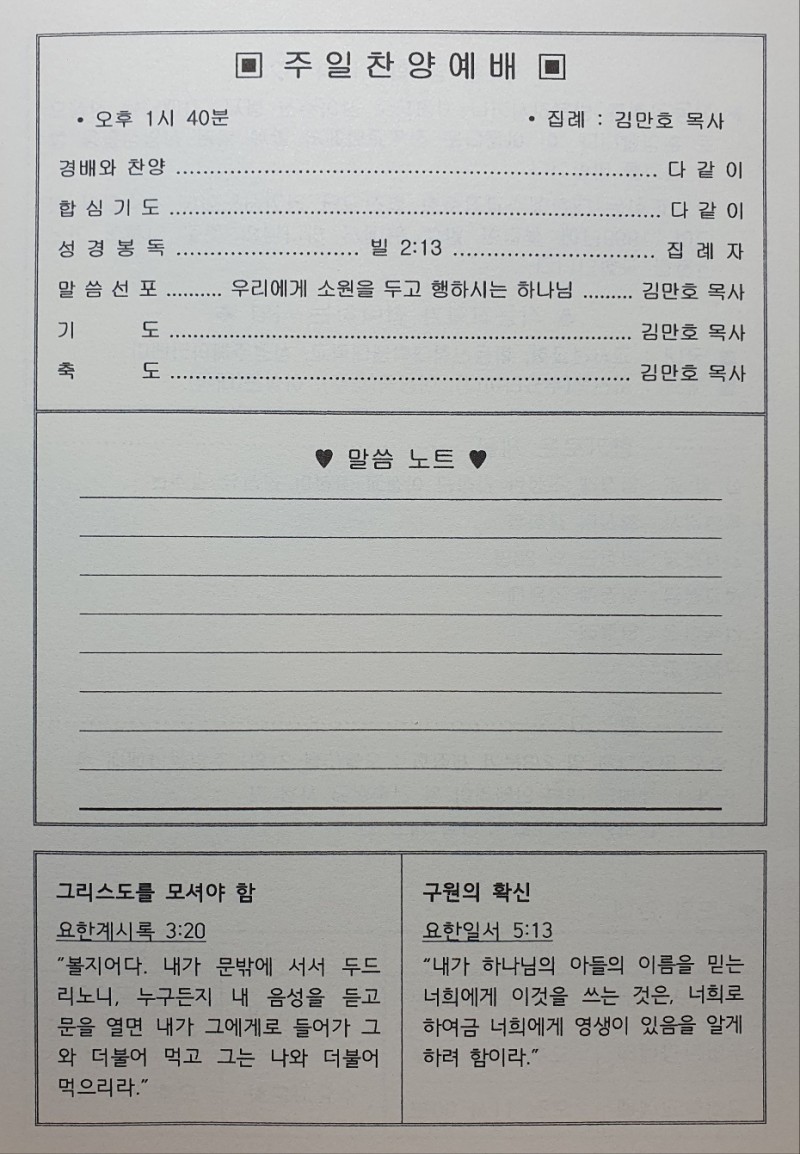 ▣ 주일찬양예배 ▣
• 오후 1시 40분 • 집례 : 김만호 목사
경배와 찬양 ........ 다 같 이
합 심 기 도 ........ 다 같 이
성 경 봉 독 ........ 빌 2:13 ........ 집 례 자
말 씀 선 포 ........ 우리에게 소원을 두고 행하시는 하나님 ........ 김만호 목사
기 도 ........ 김만호 목사
축 도 ........ 김만호 목사
♥ 말씀 노트 ♥
그리스도를 모셔야 함
요한계시록 3:20
"볼지어다. 내가 문밖에 서서 두드
리노니, 누구든지 내 음성을 듣고
문을 열면 내가 그에게로 들어가 그
와 더불어 먹고 그는 나와 더불어
먹으리라."
구원의 확신
요한일서 5:13
"내가 하나님의 아들의 이름을 믿는
너희에게 이것을 쓰는 것은, 너희로
하여금 너희에게 영생이 있음을 알게
하려 함이라."